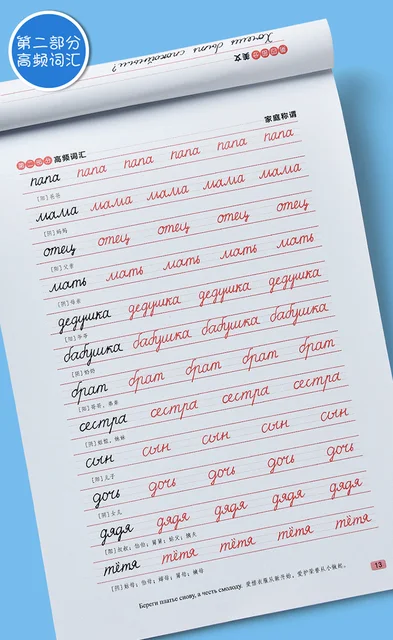 第二部分
高频词汇
Хочешь быть спокойным?
第四部分 美文
第二部分 高频词汇 家庭称谓
папа папа папа папа папа папа
[阳] 爸爸
мама мама мама мама мама
[阴] 妈妈
отец отец отец отец отец
[阳] 父亲
мать мать мать мать мать
[阴] 母亲
дедушка дедушка дедушка дедушка
[阳] 爷爷
бабушка бабушка бабушка бабушка
[阴] 奶奶
брат брат брат брат брат
[阳] 哥哥，弟弟
сестра сестра сестра сестра
[阴] 姐姐，妹妹
сын сын сын сын сын
[阳] 儿子
дочь дочь дочь дочь дочь
[阴] 女儿
дядя дядя дядя дядя дядя
[阳] 叔叔；伯伯；舅舅；姑父；姨夫
тётя тётя тётя тётя тётя
[阴] 姑母；伯母；婶母；舅母；姨母
13
Береги платье снову, а честь смолоду. 爱惜衣服从新开始，爱护荣誉从小做起。